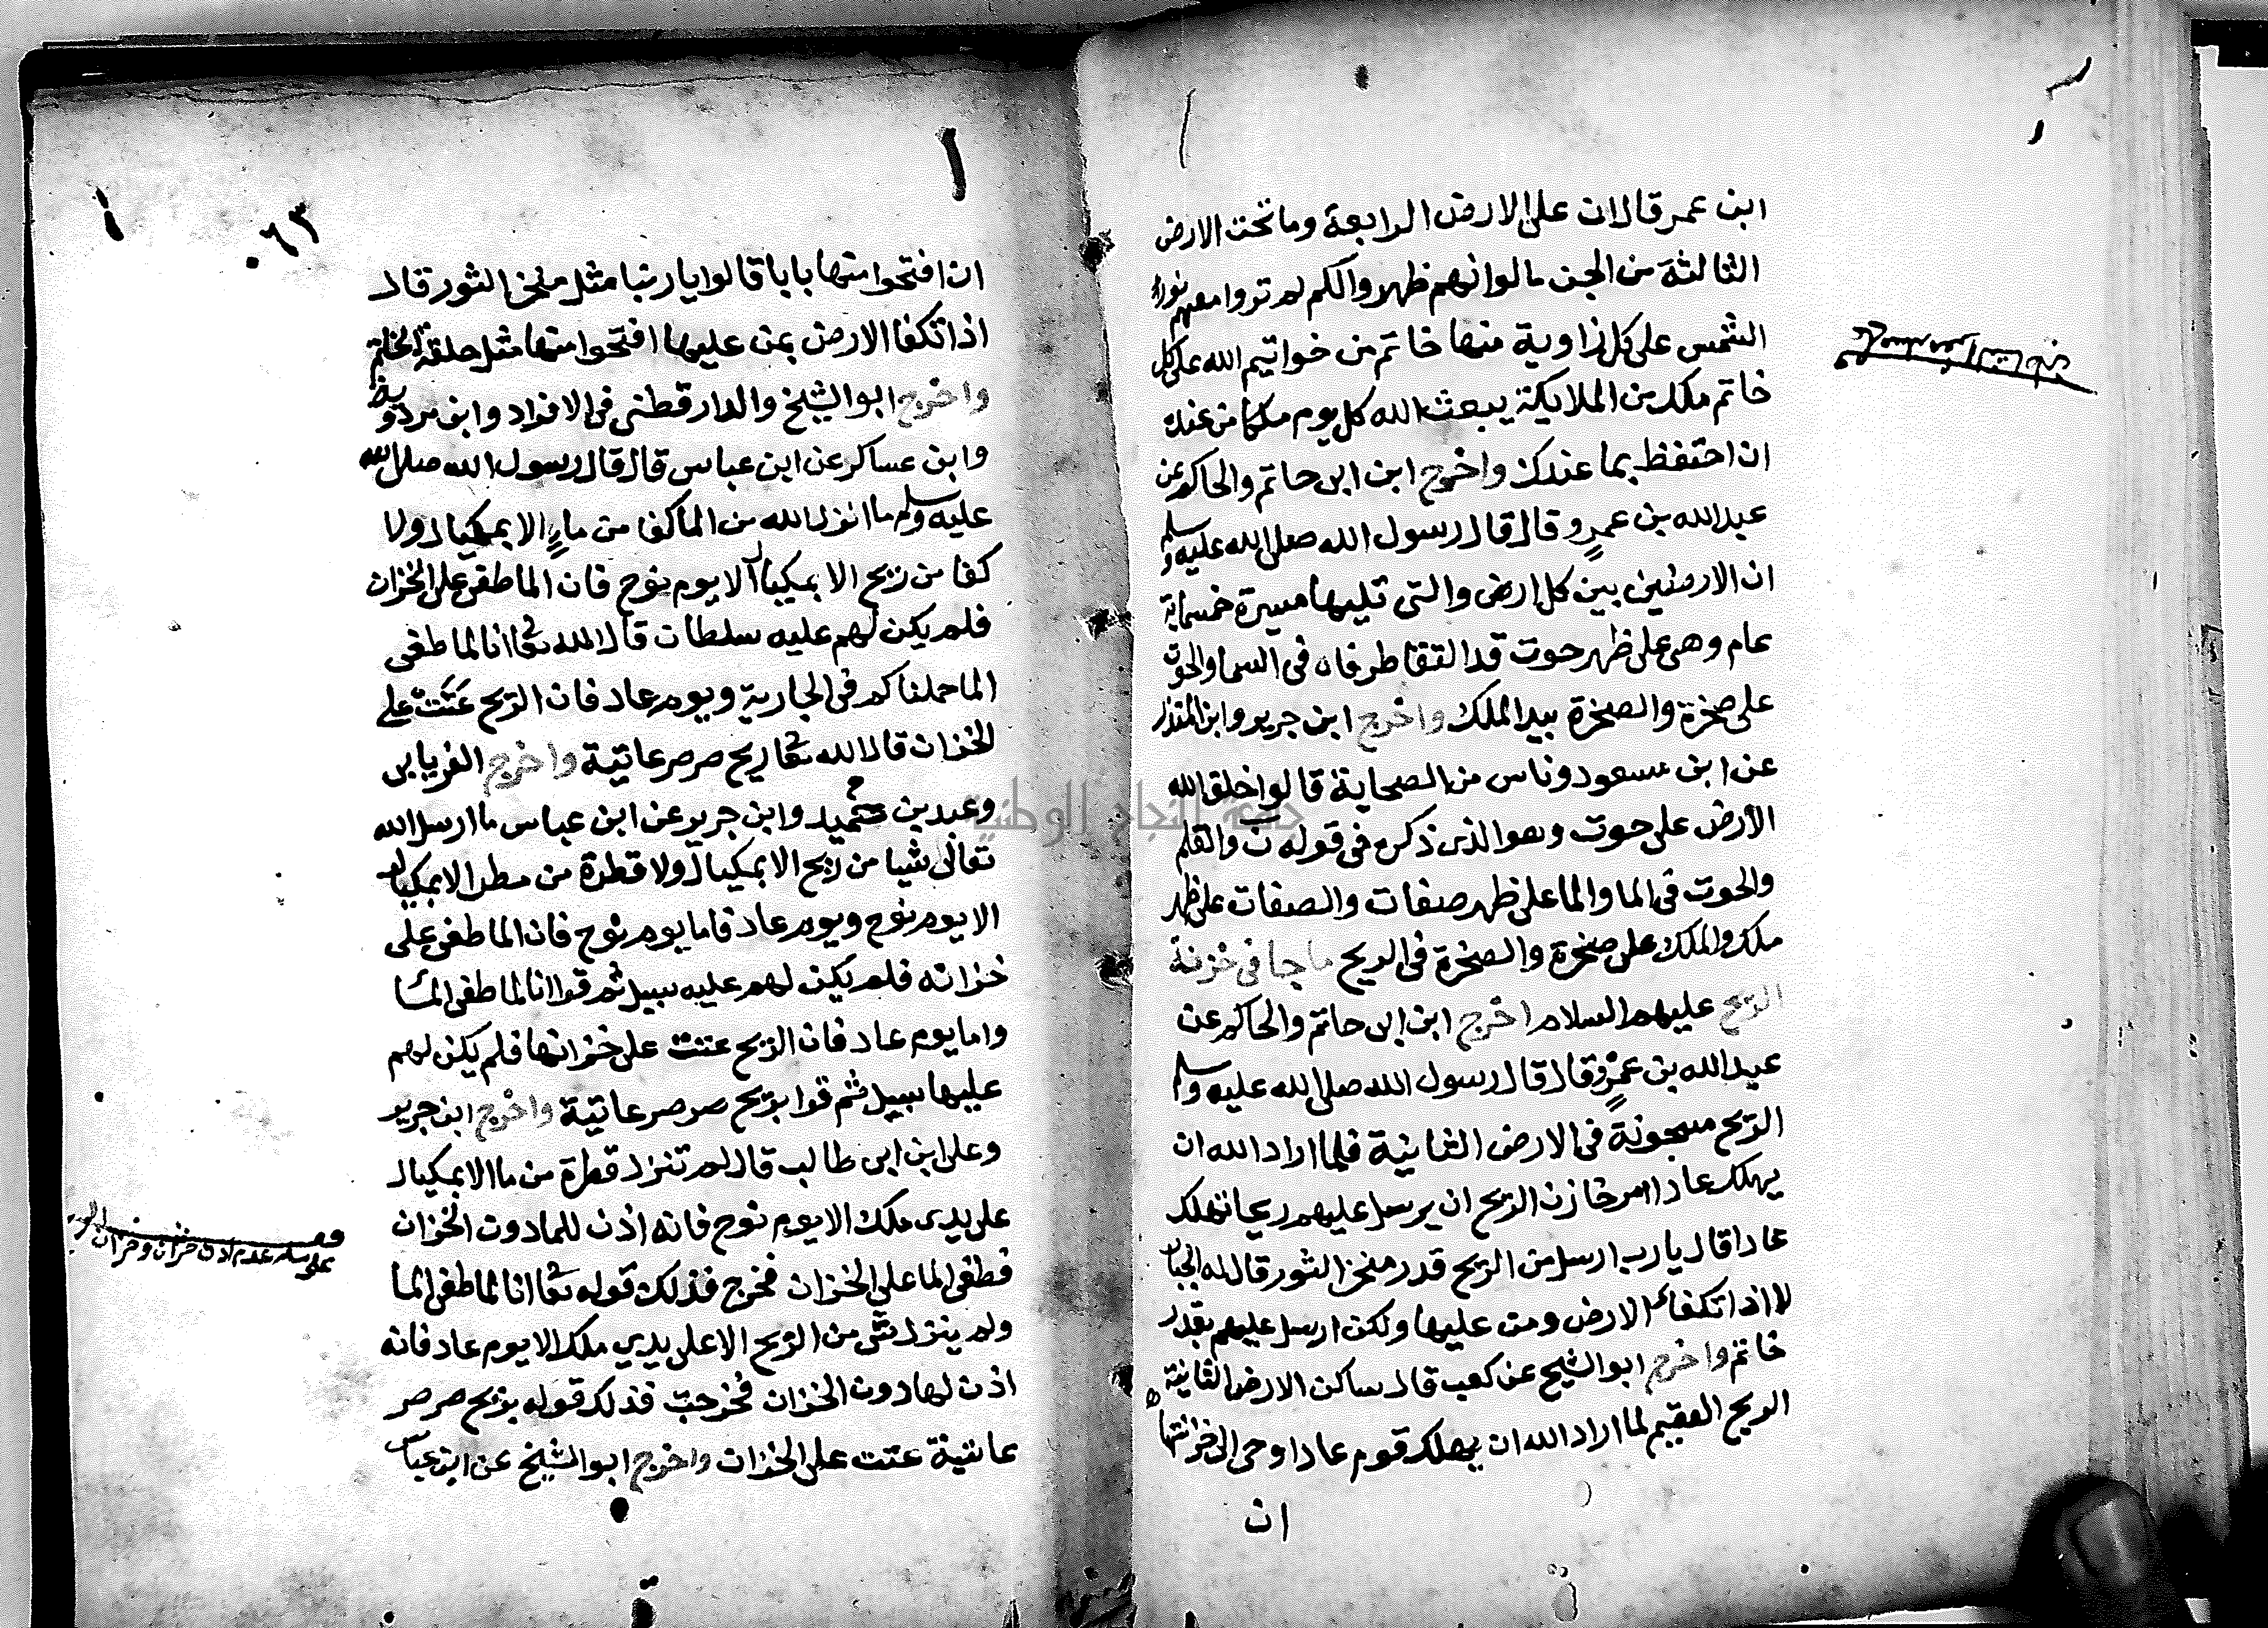 ابن عمر قال ان على الارض الرابعة وما تحت الارض
الثالثة من الجن مالوا نهم ظهروا لكم لم تروا معهم نور
الشمس على كل زاوية منها خاتم من خواتيم الله على كل
خاتم ملك من الملايكة يبعث الله كل يوم ملكا من عنده
ان احتفظ بما عندك واخرج ابن ابى حاتم والحاكم عن
عبد الله بن عمرو قال قال رسول الله صلى الله عليه وسلم
ان الارضين بين كل ارض والتى تليها مسيرة خمسماية
عام وهى على ظهر حوت قد التقا طرفاه فى السما والحوت
على صخرة والصخرة بيد الملك واخرج ابن جرير وابن المنذر
عن ابن مسعود وناس من الصحابة قالوا خلق الله
الأرض على حوت وهو الذى ذكره فى قوله ن والقلم
والحوت فى الما والما على ظهر صفات والصفات على ظهر
ملك والملك على صخرة والصخرة فى الريح ما جا فى خزنة
الريح عليهم السلام اخرج ابن ابى حاتم والحاكم عن
عبد الله بن عمرو قال قال رسول الله صلى الله عليه وسلم
الريح مسجونة فى الارض الثانية فلما اراد الله ان
يهلك عادا امر خازن الريح ان يرسل عليهم ريحا تهلك
عادا قال يارب ارسل من الريح قدر منخر الثور قال له الجبار
لا اذا تكفا الارض ومن عليها ولكن ارسل عليهم بقدر
خاتم واخرج ابو الشيخ عن كعب قال ساكن الارض الثانية
الريح العقيم لما اراد الله ان يهلك قوم عادا وحى الى خزانتها
ان
٠٦٣
ان افتحوا منها بابا قالوا يا ربنا مثل منخر الثور قال
اذا تكفا الارض بمن عليها افتحوا منها مثل حلقة الخاتم
واخرج ابو الشيخ والدارقطنى فى الافراد وابن مردويه
وابن عساكر عن ابن عباس قال قال رسول الله صلى الله
عليه وسلم ما انزل الله من الما كفا من ماء الا بمكيال ولا
كفا من ريح الا بمكيال الا يوم نوح فان الما طغى على الخزان
فلم يكن لهم عليه سلطان قال الله تعا انا لما طغى
الما حملناكم فى الجارية ويوم عاد فان الريح عتت على
الخزان قال الله تعا ريح صرصر عاتية واخرج الفريابى
وعبد بن حميد وابن جرير عن ابن عباس ما ارسل الله
تعالى شيا من ريح الا بمكيال ولا قطرة من مطر الا بمكيال
الا يوم نوح ويوم عاد فاما يوم نوح فان الما طغى على
خزانه فلم يكن لهم عليه سبيل ثم قرا انا لما طغى الما
واما يوم عاد فان الريح عتت على خزانها فلم يكن لهم
عليها سبيل ثم قرا بريح صرصر عاتية واخرج ابن جرير
وعلى ابن ابى طالب قال لم تنزل قطرة من ما الا بمكيال
على يدى ملك الا يوم نوح فانه اذن للما دون الخزان
فطغى الما على الخزان فخرج فذلك قوله تعا انا لما طغى الما
ولم ينزل شى من الريح الا على يدي ملك الا يوم عاد فانه
اذن لها دون الخزان فخرجت فذلك قوله بريح صرصر
عاتية عتت على الخزان واخرج ابو الشيخ عن ابن عباس
جامعة النجاح الوطنية